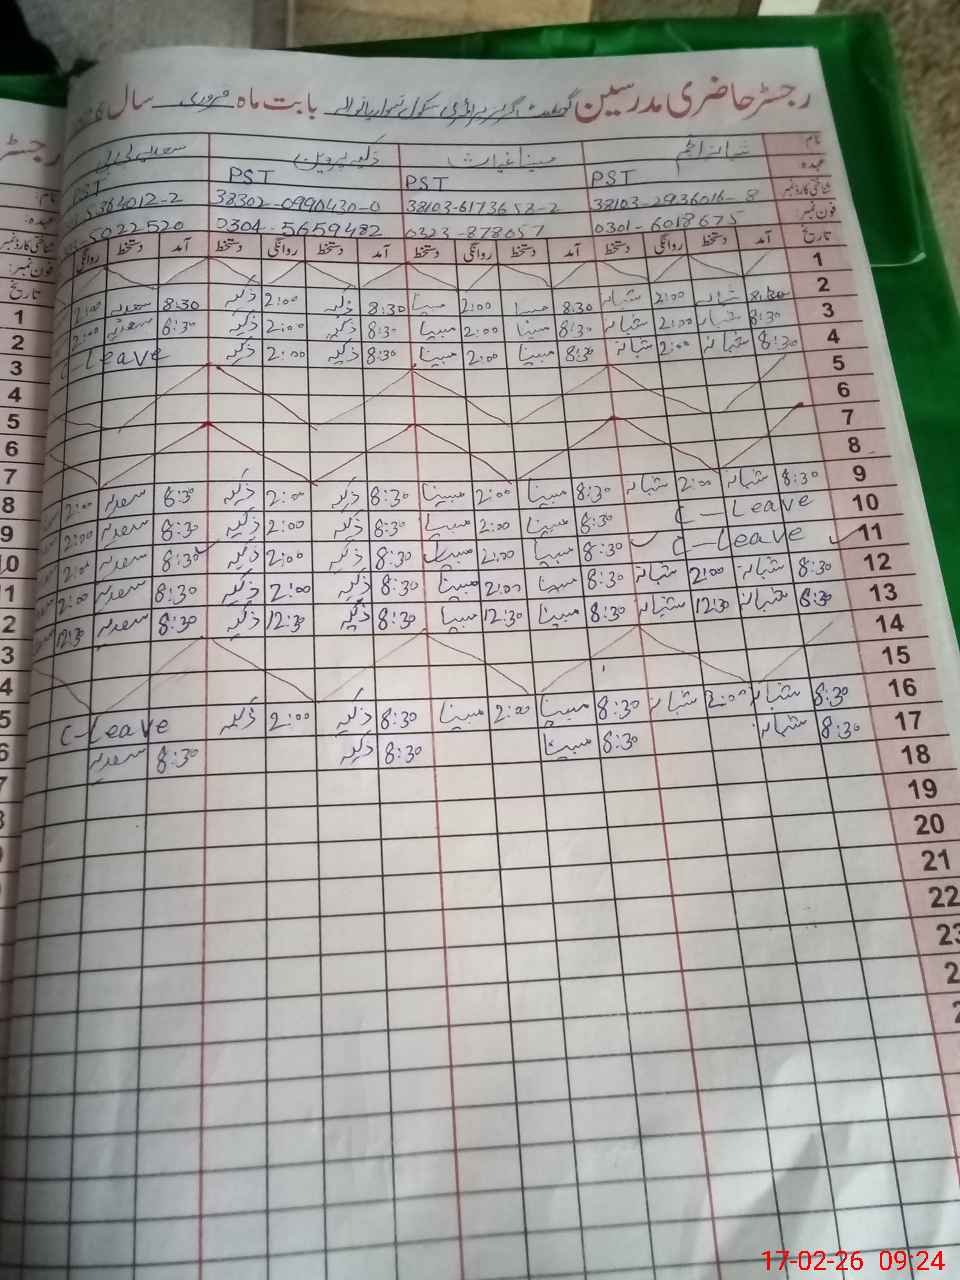 رجسٹر حاضری مدرسین گورنمنٹ گرلز پرائمری سکول بابت ماہ فروری سال
نام شبانہ انجم مبینا ذکیہ پروین سعدیہ
عہدہ PST PST PST PST
شناختی کارڈ نمبر 38103-2936016-8 38103-6173658-2 38302-0990430-0 364012-2
فون نمبر: 0301-6018675 0323-878057 0304-5659482 5022520
تاریخ آمد دستخط روانگی دستخط آمد دستخط روانگی دستخط آمد دستخط روانگی دستخط آمد دستخط روانگی
1
2 8:30 شبانہ 2:00 شبانہ 8:30 مبینا 2:00 مبینا 8:30 ذکیہ 2:00 ذکیہ 8:30 سعدیہ 2:00
3 8:30 شبانہ 2:00 شبانہ 8:30 مبینا 2:00 مبینا 8:30 ذکیہ 2:00 ذکیہ 8:30 سعدیہ 2:00
4 8:30 شبانہ 2:00 شبانہ 8:30 مبینا 2:00 مبینا 8:30 ذکیہ 2:00 ذکیہ C-Leave
5
6
7
8
9 8:30 شبانہ 2:00 شبانہ 8:30 مبینا 2:00 مبینا 8:30 ذکیہ 2:00 ذکیہ 8:30 سعدیہ 2:00
10 C-Leave 8:30 مبینا 2:00 مبینا 8:30 ذکیہ 2:00 ذکیہ 8:30 سعدیہ 2:00
11 C-Leave 8:30 مبینا 2:00 مبینا 8:30 ذکیہ 2:00 ذکیہ 8:30 سعدیہ 2:00
12 8:30 شبانہ 2:00 شبانہ 8:30 مبینا 2:00 مبینا 8:30 ذکیہ 2:00 ذکیہ 8:30 سعدیہ 2:00
13 8:30 شبانہ 12:30 شبانہ 8:30 مبینا 12:30 مبینا 8:30 ذکیہ 12:30 ذکیہ 8:30 سعدیہ 12:30
14
15
16 8:30 شبانہ 2:00 شبانہ 8:30 مبینا 2:00 مبینا 8:30 ذکیہ 2:00 ذکیہ C-Leave
17 8:30 شبانہ 8:30 مبینا 8:30 ذکیہ 8:30 سعدیہ
18
19
20
21
22
23
رجسٹر
نام:
عہدہ:
شناختی کارڈ نمبر
فون نمبر:
تاریخ
1
2
3
4
5
6
7
8
9
10
11
12
13
14
15
16
17
17-02-26 09:24